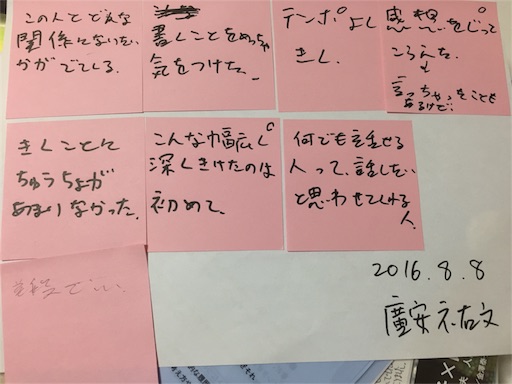 この人とどんな
関係になりたい
かがでてくる.
書くことをめっちゃ
気をつけた.
テンポよし
きし.
感想をじって
こらえた.
言っちゃうことも
あるけど.
きくことに
ちゅうちょが
あまりなかった.
こんな幅広く
深くきけたのは
初めて.
何でも話せる
人って、話したい
と思わせてくれる
人.
2016.8.8
廣安祐文